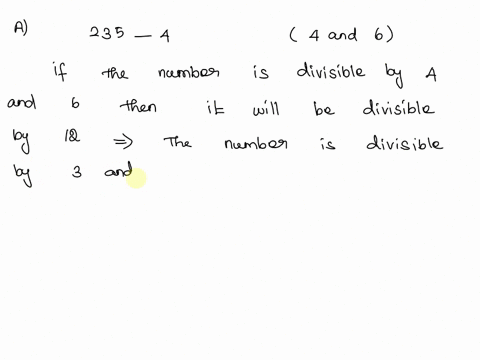 A) 235 — 4 ( 4 and 6)
if the number is divisible by 4
and 6 then it will be divisible
by 12 ⇒ The number is divisible
by 3 and